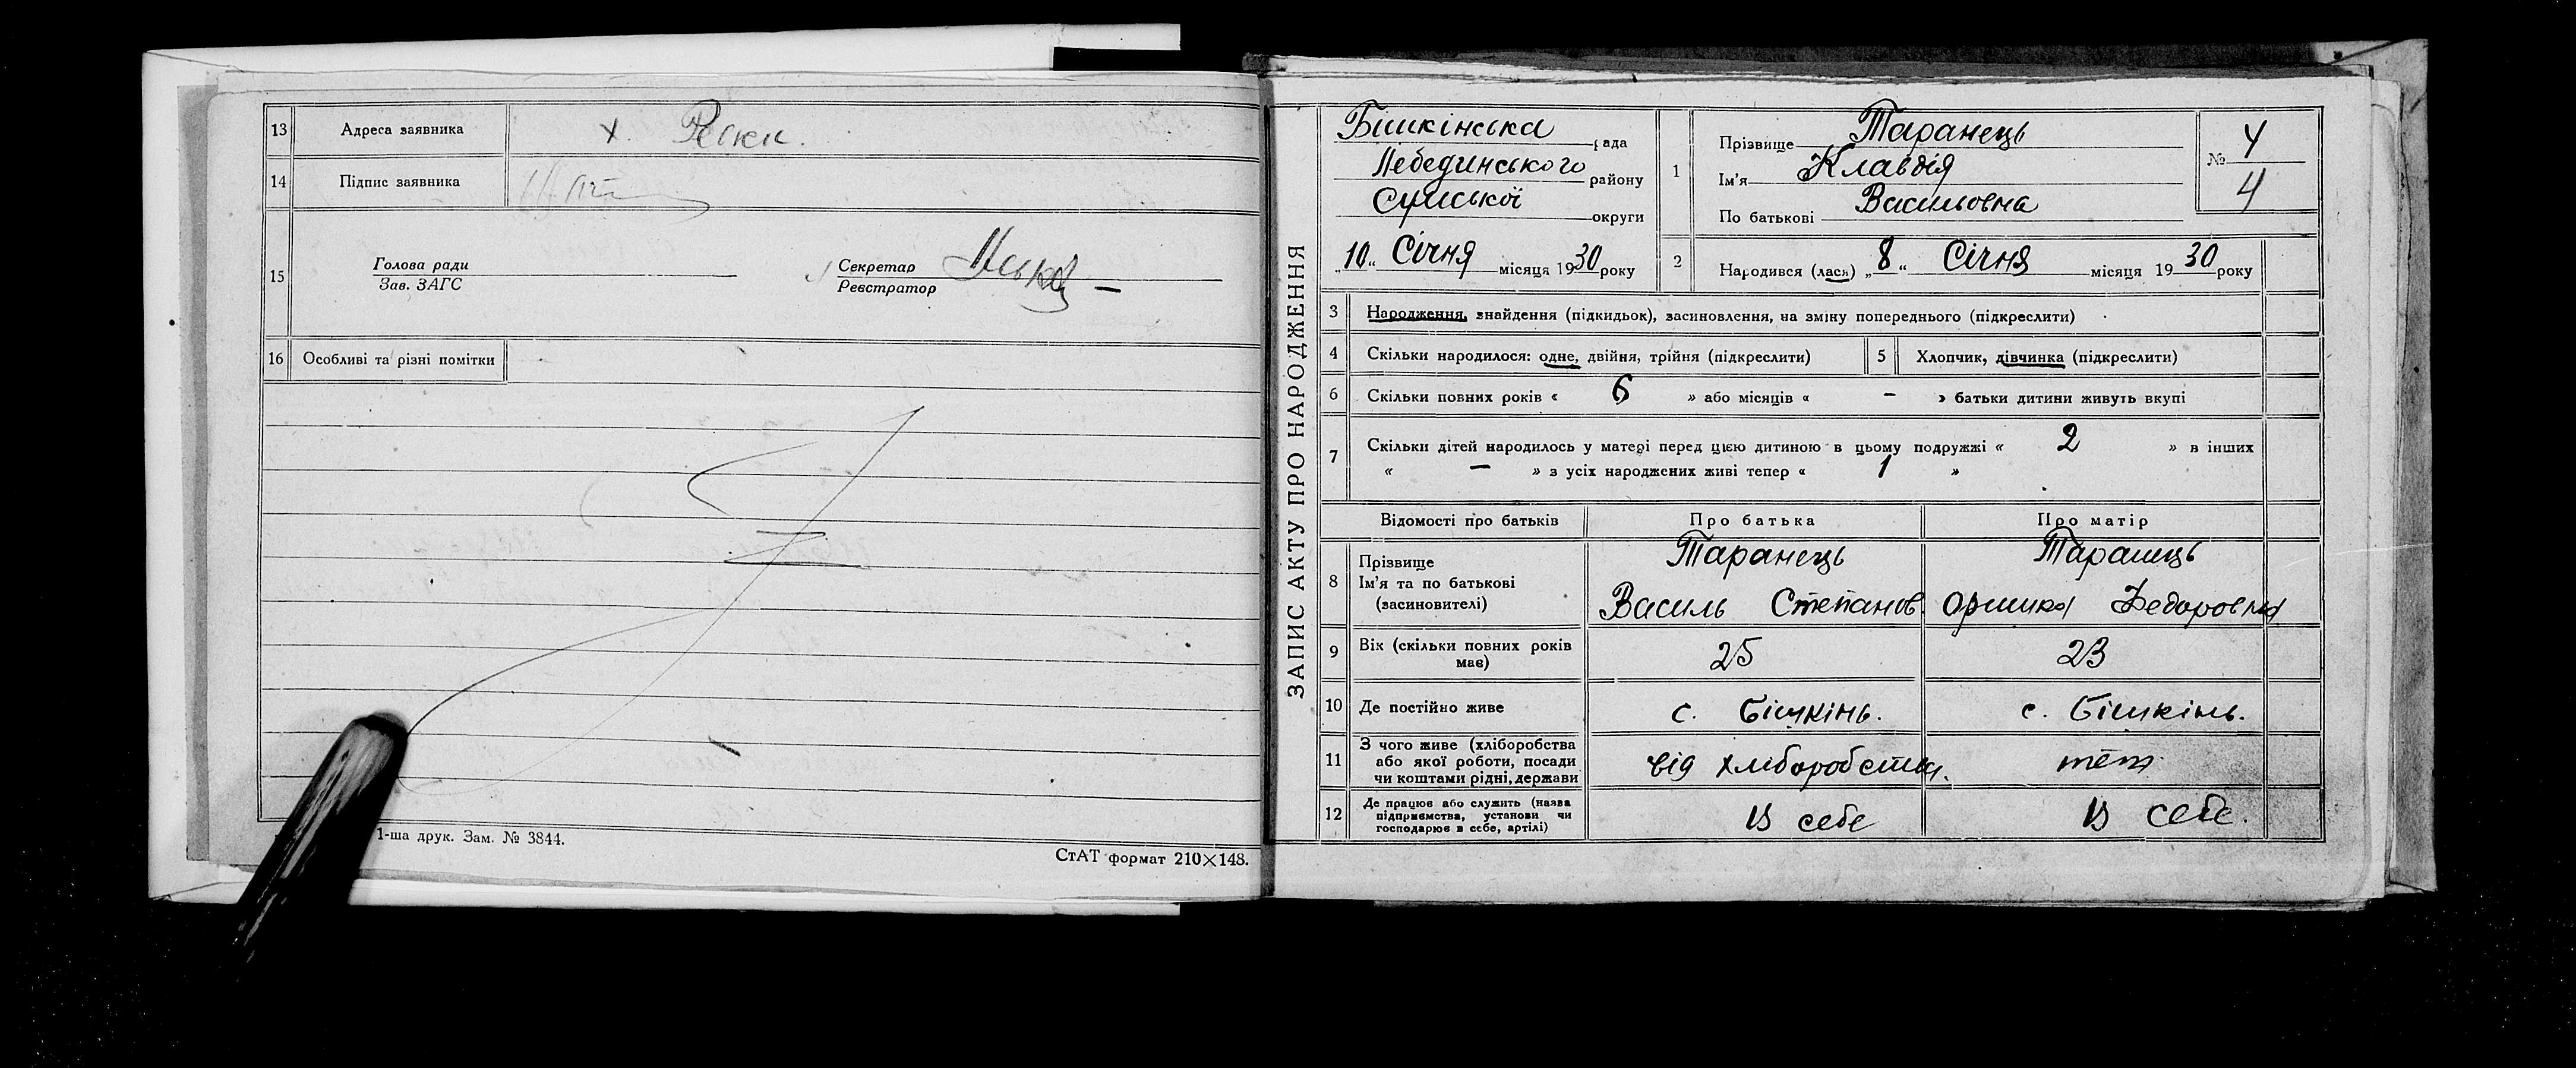 13 Адреса заявника х.
14 Підпис заявника
15 Голова ради
Зав. ЗАГС
Секретар
Реєстратор
16 Особливі та різні помітки
1-ша друк. Зам. № 3844.
СтАТ формат 210×148.
ЗАПИС АКТУ ПРО НАРОДЖЕННЯ
Бишкінська рада
Лебединського району
Сумської округи
„10“ Січня місяця 1930 року
1 Прізвище Таранець
Ім'я Клавдія
По батькові Васильовна
№ 4
4
2 Народився (лась) „8“ Січня місяця 1930 року
3 Народження, знайдення (підкидьок), засиновлення, на зміну попереднього (підкреслити)
4 Скільки народилося: одне, двійня, трійня (підкреслити)
5 Хлопчик, дівчинка (підкреслити)
6 Скільки повних років « 6 » або місяців « – » батьки дитини живуть вкупі
7 Скільки дітей народилось у матері перед цією дитиною в цьому подружжі « 2 » в інших
« – » з усіх народжених живі тепер « 1 »
Відомості про батьків Про батька Про матір
8 Прізвище
Ім'я та по батькові
(засиновителі)
Таранець
Василь Степанов.
Таранець
Оришка Федоровна
9 Вік (скільки повних років
має)
25
23
10 Де постійно живе с. Бішкінь. с. Бішкінь.
11 З чого живе (хліборобства
або якої роботи, посади
чи коштами рідні, держави
від хліборобства.
теж
12 Де працює або служить (назва
підприємства, установи чи
господарює в себе, артілі)
В себе
В себе.